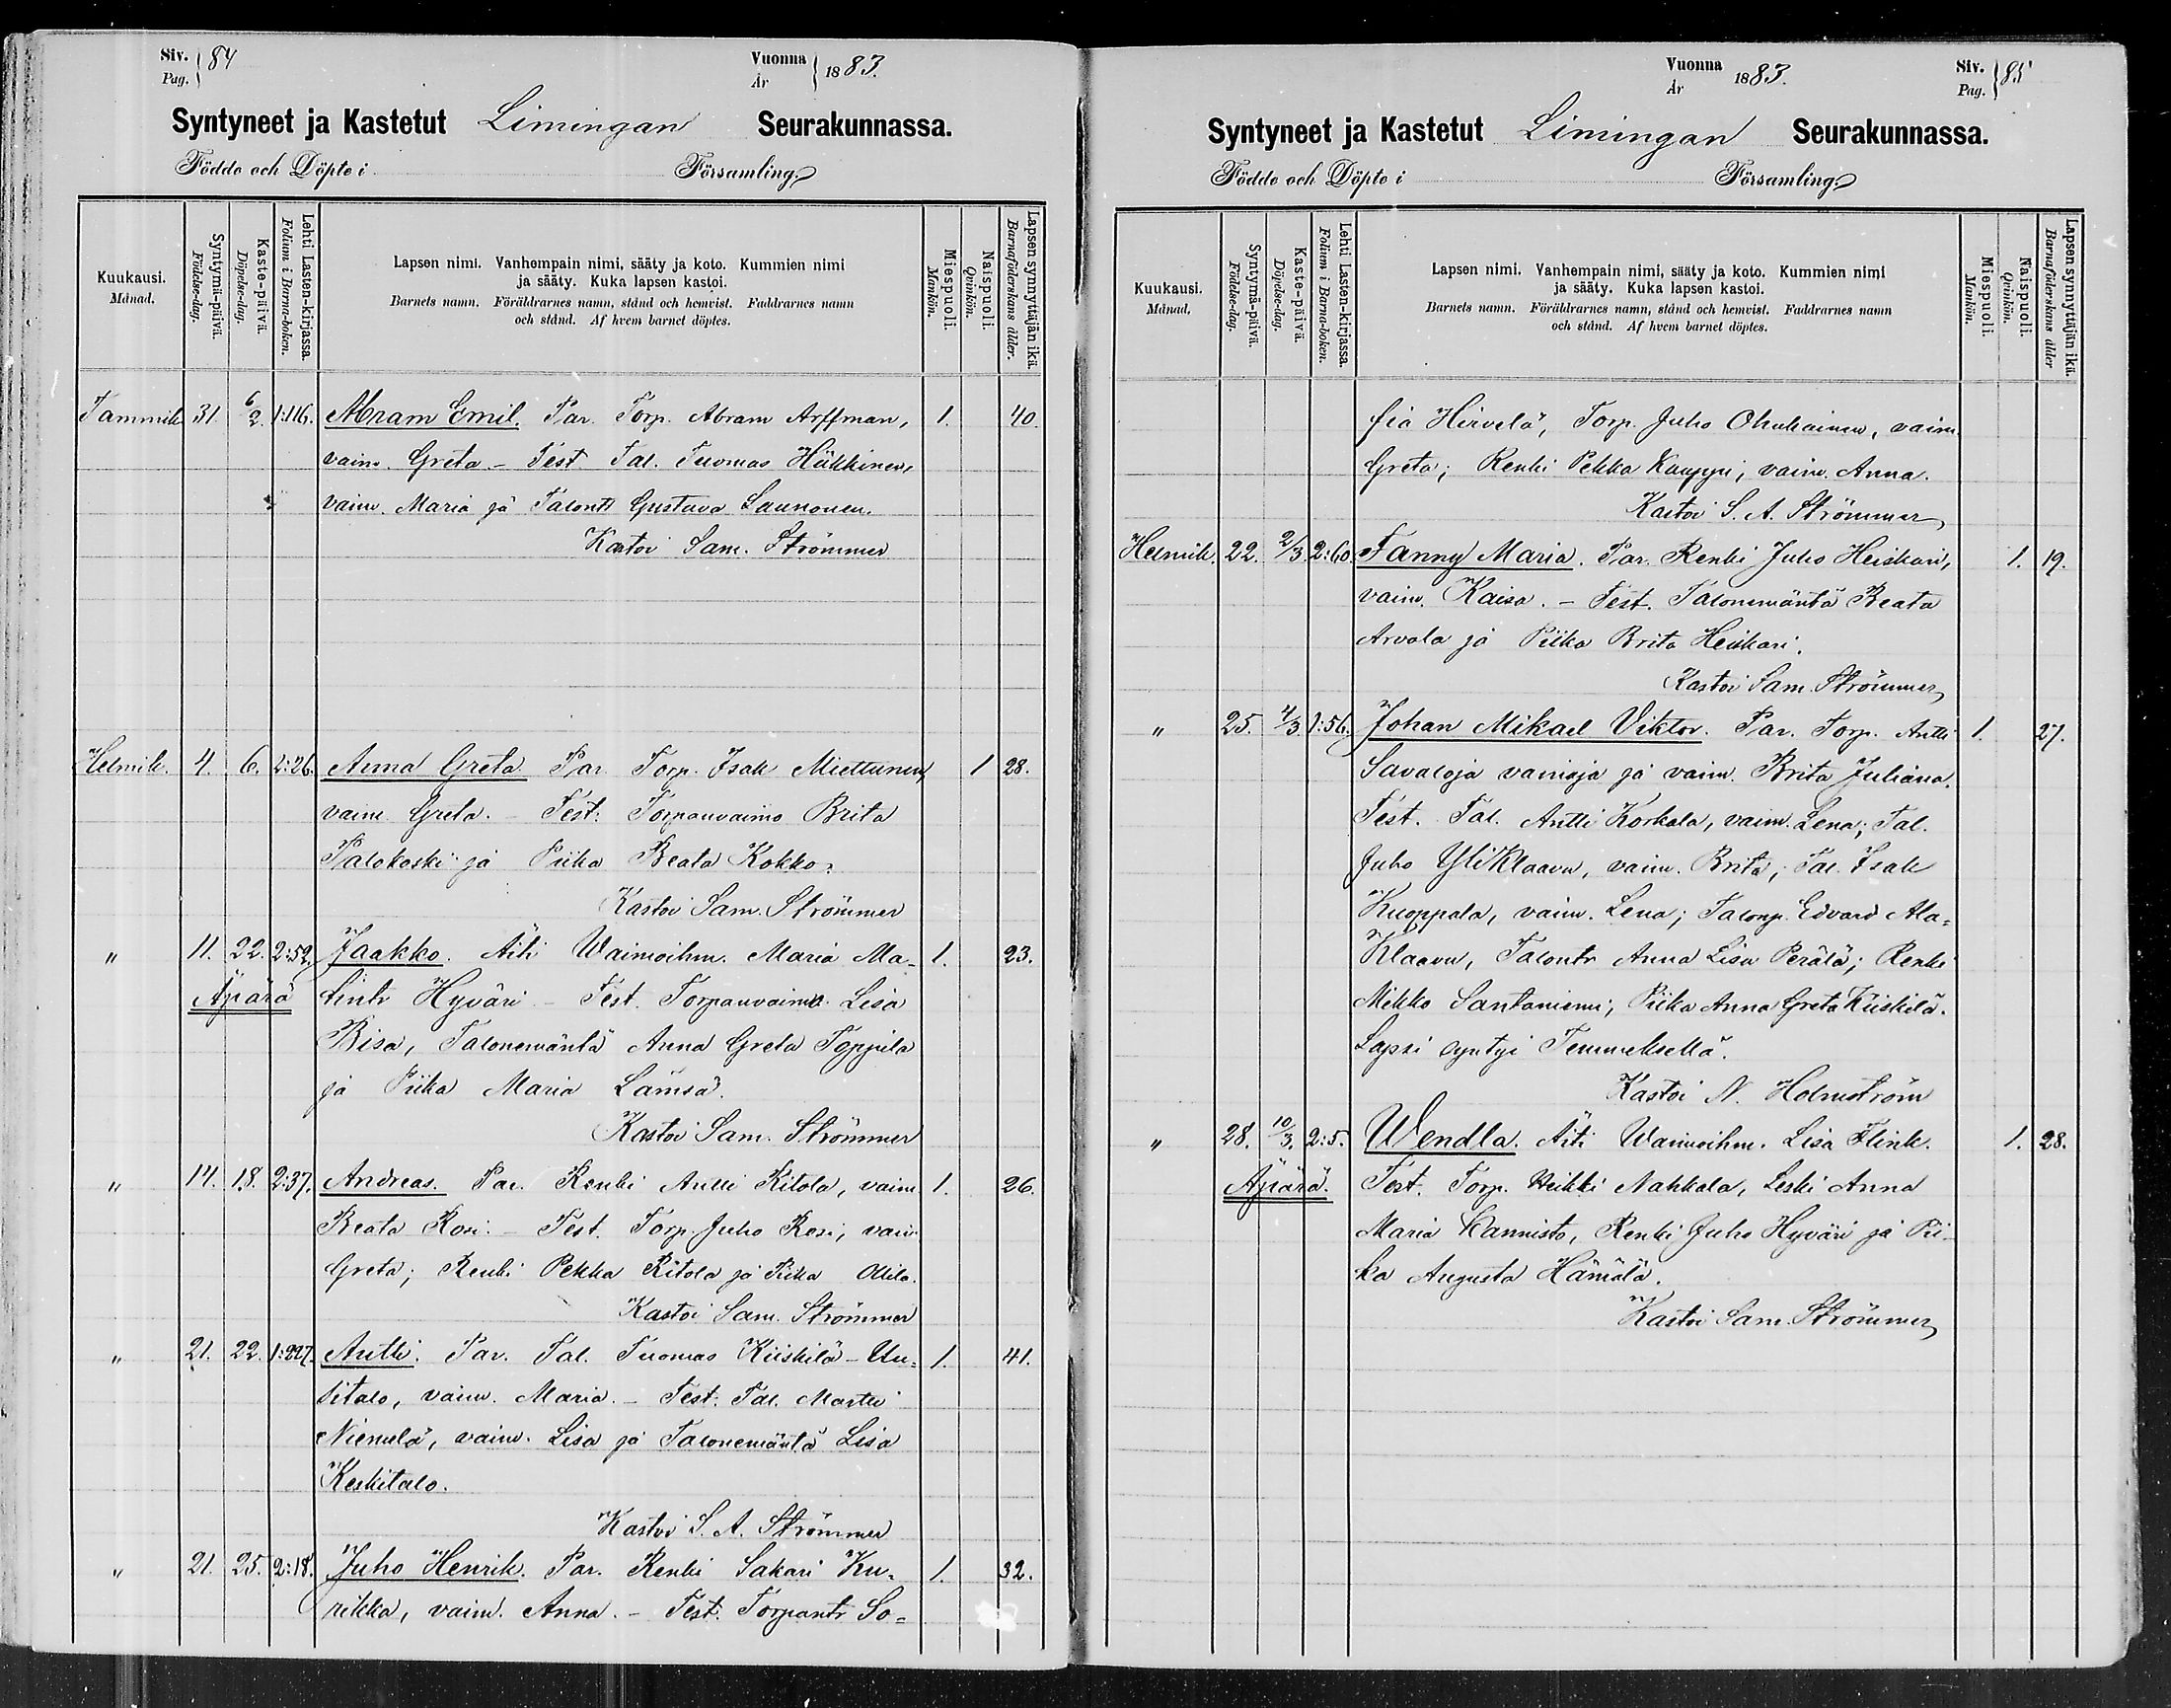 Siv. 84
Pag.
Vuonna 1883.
År
Syntyneet ja Kastetut Limingan Seurakunnassa.
Födde och Döpte i Församling
Kuukausi.
Månad.
Syntymä-päivä.
Födelse-dag.
Kaste-päivä.
Döpelse-dag.
Lehti Lasten-kirjassa.
Folium i Barna-boken.
Lapsen nimi. Vanhempain nimi, sääty ja koto. Kummien nimi
ja sääty. Kuka lapsen kastoi.
Barnets namn. Föräldrarnes namn, stånd och hemvist. Faddrarnes namn
och stånd. Af hvem barnet döptes.
Miespuoli.
Mankön.
Naispuoli.
Qvinkön.
Lapsen synnyttäjän ikä.
Barnaföderskans ålder.
Tammik. 31. 6/2. 1:116. Abram Emil. Par. Torp. Abram Arffman, 1. 40.
vaim. Greta. - Test Tal. Tuomas Häkkinen,
vaim. Maria ja Talontr Gustava Launonen.
Kastoi Sam. Strömmer
Helmik. 4. 6. 2:26. Anna Greta Par. Torp. Isak Miettunen, 1 28.
vaim Greta. - Test: Torpanvaimo Brita
Palokoski ja Piika Beata Kokko.
Kastoi Sam. Strömmer
" 11. 22. 2:52. Jaakko. Äiti Waimoihm. Maria Ma- 1. 23.
Äpärä tintr Hyväri - Test. Torpanvaimo Lisa
Bisa, Talonemäntä Anna Greta Toppila
ja Piika Maria Lämsä.
Kastoi Sam. Strömmer
" 14. 18. 2:37. Andreas. Par. Renki Antti Kitola, vaim. 1. 26.
Beata Rosi. - Test. Torp. Juho Rosi, vaim
Greta; Renki Pekka Ritola ja Piika Ollila.
Kastoi Sam. Strömmer
" 21. 22. 1:227. Antti. Par. Tal. Tuomas Kiiskilä-Uu- 1. 41.
sitalo, vaim. Maria. - Test: Tal. Martti
Niemelä, vaim. Lisa ja Talonemäntä Lisa
Keskitalo.
Kastoi S. A. Strömmer
" 21. 25. 2:18. Juho Henrik. Par. Renki Sakari Ku- 1. 32.
rikka, vaim. Anna. - Test. Torpantr So-
Vuonna 1883.
År
Siv. 85
Pag.
Syntyneet ja Kastetut Limingan Seurakunnassa.
Födde och Döpte i Församling
Kuukausi.
Månad.
Syntymä-päivä.
Födelse-dag.
Kaste-päivä.
Döpelse-dag.
Lehti Lasten-kirjassa.
Folium i Barna-boken.
Lapsen nimi. Vanhempain nimi, sääty ja koto. Kummien nimi
ja sääty. Kuka lapsen kastoi.
Barnets namn. Föräldrarnes namn, stånd och hemvist. Faddrarnes namn
och stånd. Af hvem barnet döptes.
Miespuoli.
Mankön.
Naispuoli.
Qvinkön.
Lapsen synnyttäjän ikä.
Barnaföderskans ålder
fia Hirvelä, Torp. Juho Ohukainen, vaim.
Greta; Renki Pekka Kauppi, vaim. Anna.
Kastoi S. A. Strömmer
Helmik. 22. 2/3. 2:60. Fanny Maria. Par. Renki Juho Heiskari, 1. 19.
vaim. Kaisa. - Test. Talonemäntä Beata
Arvola ja Piika Brita Heiskari.
Kastoi Sam. Strömmer
" 25. 4/3. 1:56. Johan Mikael Viktor. Par. Torp. Antti 1. 27.
Savaloja vainaja ja vaim. Brita Juliana.
Test. Tal. Antti Korkala, vaim. Lena; Tal.
Juho YliKlaavu, vaim. Brita; Tal. Isak
Kuoppala, vaim. Lena; Talonp. Edvard Ala-
Klaavu, Talontr Anna Lisa Perälä; Renki
Mikko Santaniemi; Piika Anna Greta Kiiskilä.
Lapsi syntyi Temmeksellä.
Kastoi N. Holmström
" 28. 10/3. 2:5. Wendla. Äiti Waimoihm. Lisa Flink. 1. 28.
Äpärä. Test. Torp. Heikki Nahkala, Leski Anna
Maria Kannisto, Renki Juho Hyväri ja Pii-
ka Augusta Hämälä.
Kastoi Sam. Strömmer